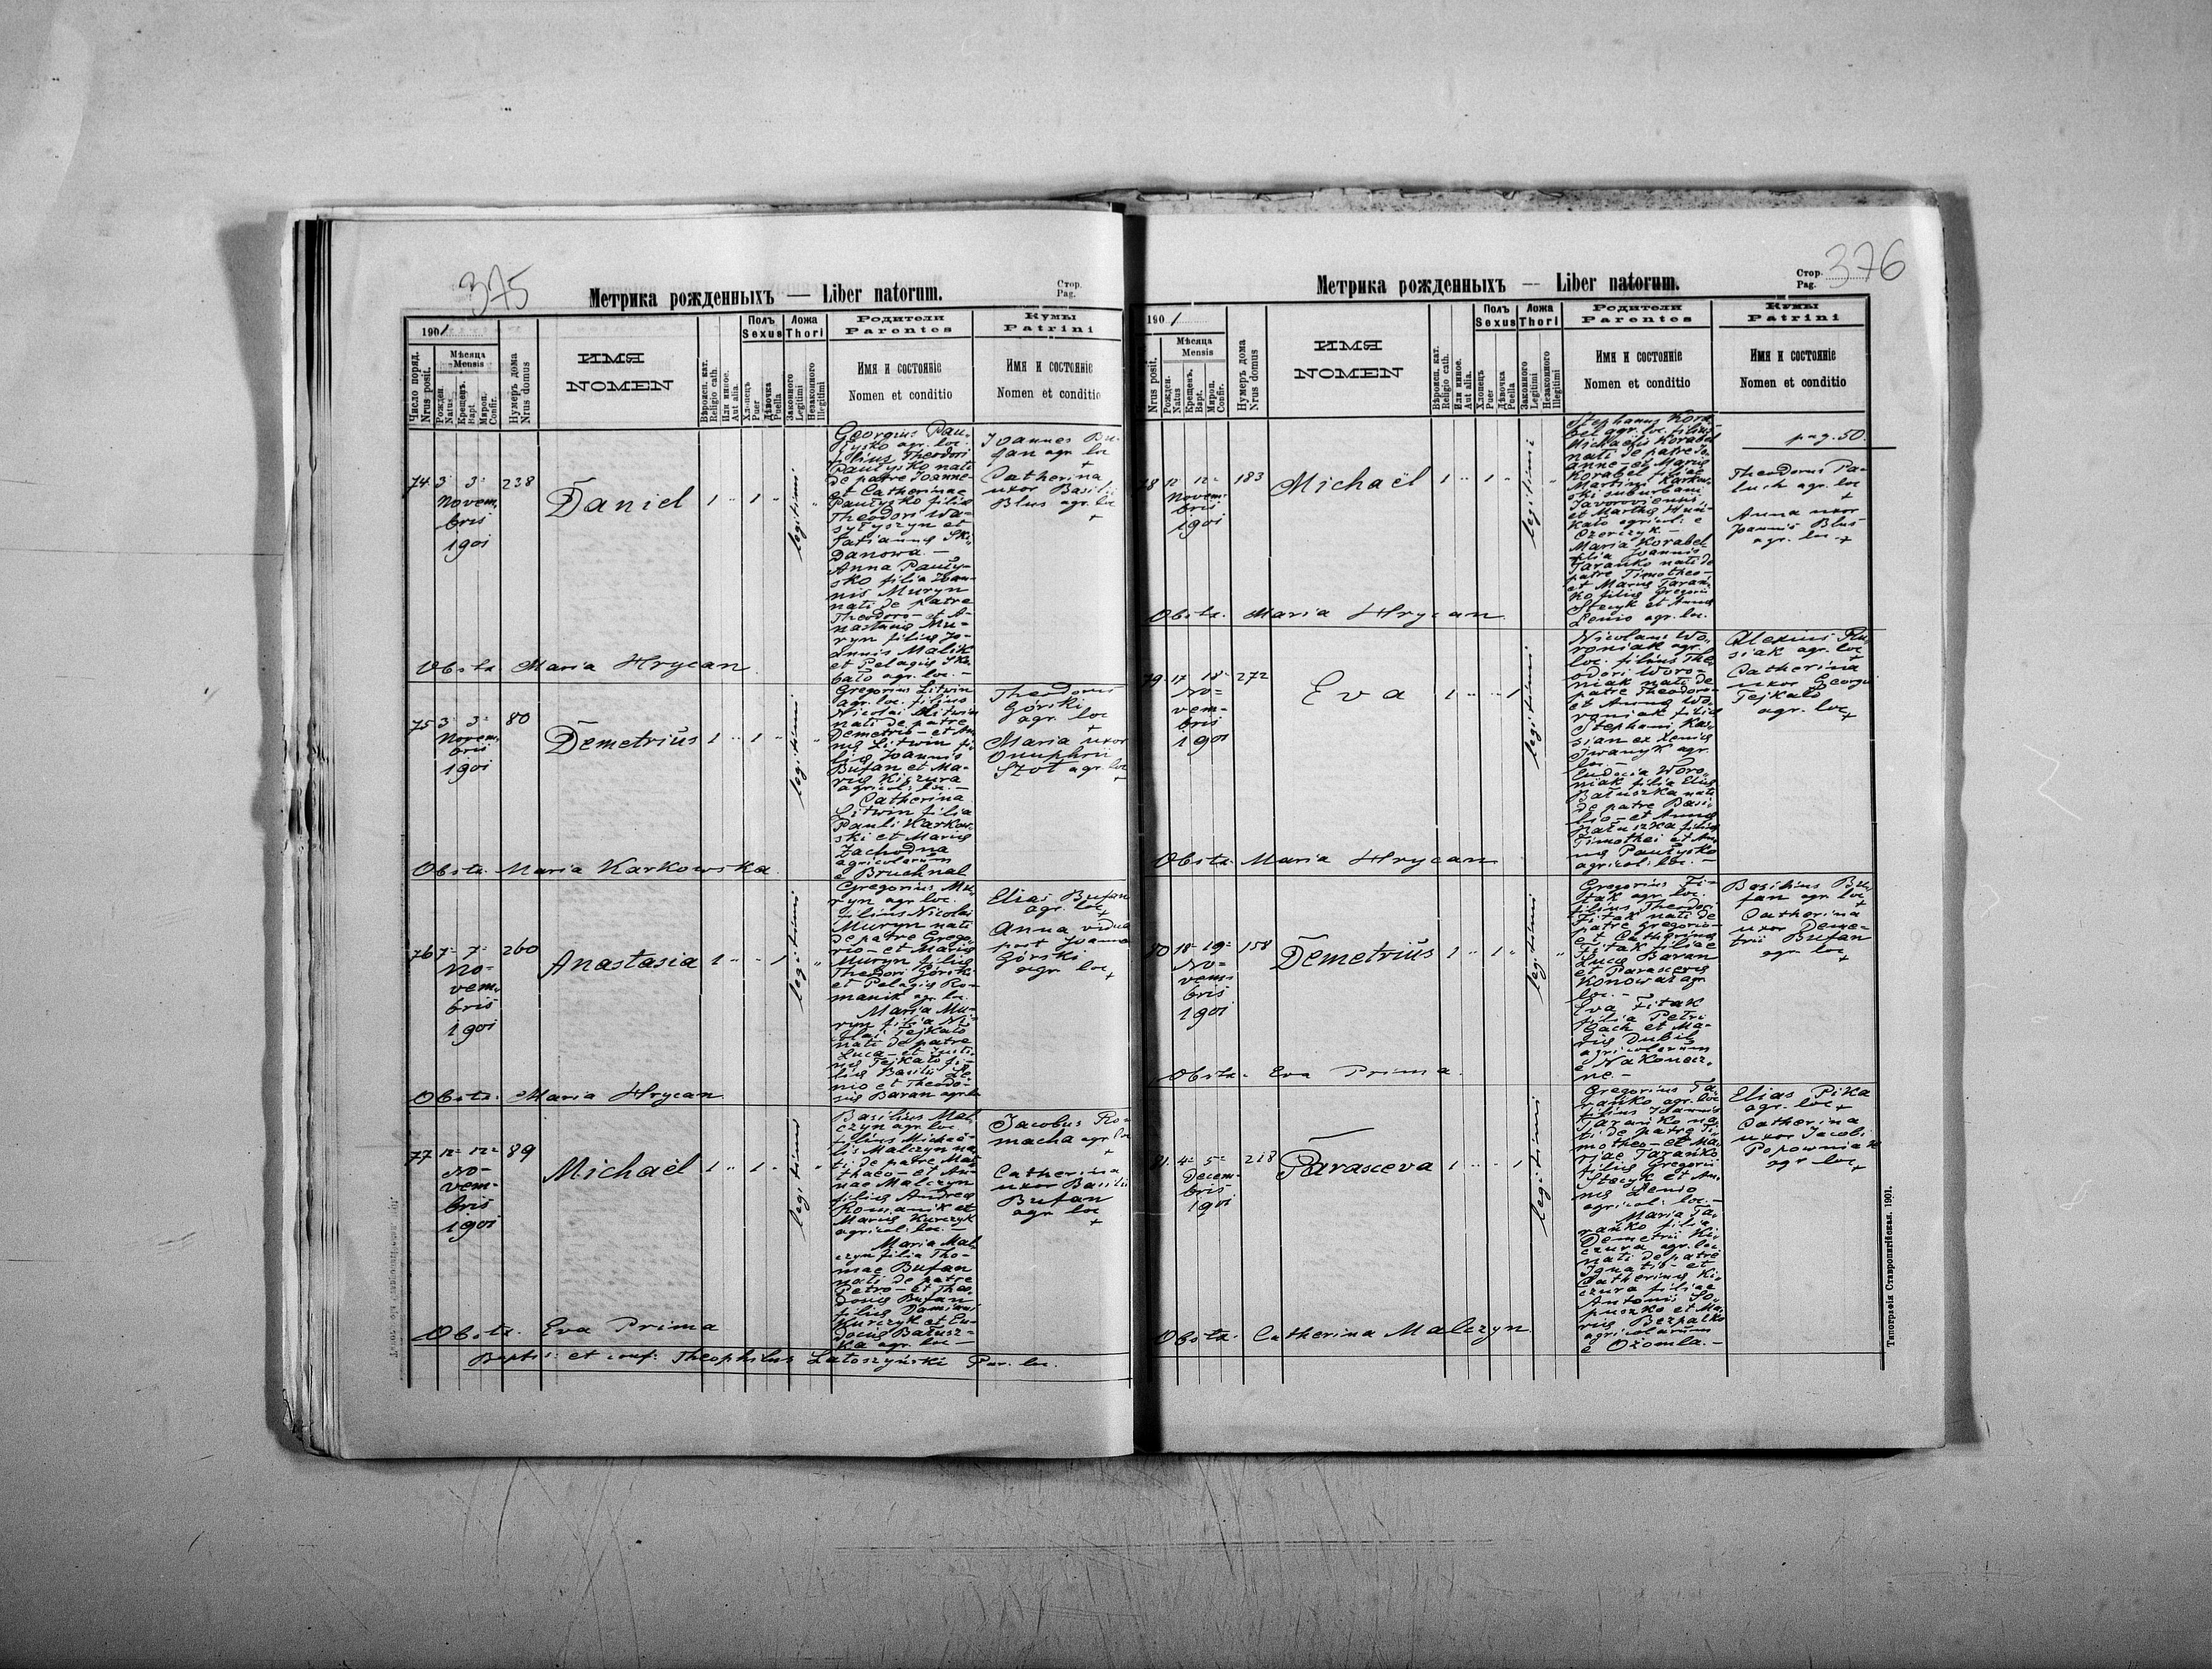 375
Метрика рожденныхъ — Liber natorum.
Стор.
Pag.
1901
Число поряд.
Nrus posit.
Мѣсяца
Mensis
Рожден.
Natus
Крещенъ.
Bapt.
Мироп.
Confir.
Нумеръ дома
Nrus domus
ИМЯ
NOMEN
Вѣроисп. кат.
Religio cath.
Или инное.
Aut alia.
Полъ
Sexus
Хлопецъ
Puer
Дѣвочка
Puella
Ложа
Thori
Законного
Legitimi
Незаконного
Illegitimi
Родители
Parentes
Имя и состояніе
Nomen et conditio
Кумы
Patrini
Имя и состояніе
Nomen et conditio
74 3 3
Novem-
bris
1901
238
Daniel
1 " 1 "
legitimi
Georgius Pau-
łysko agr. loc.
filius Theodori
Paułysko nati
de patre Joanne-
et Catherinae
Paułysko filiae
Theodori Wa-
syłyszyn et
Tatianna Ski-
danowa. —
Anna Pauły-
sko filia Joan-
nis Muryn
nati de patre
Theodoro - et A-
nastasiae Mu-
ryn filiae Jo-
annis Malik
et Pelagiae Ska-
bało agr. loc. —
Joannes Bu-
fan agr. loc
+
Catherina
uxor Basilii
Blus agr. loc
+
Obstx. Maria Hrycan
75 3 3
Novem-
bris
1901
80
Demetrius
1 " 1 "
legitimi
Gregorius Litwin
agr. loc. filius
Nicolai Litwin
nati de patre
Demetrio - et An-
nae Litwin fi-
liae Joannis
Bufan et Ma-
riae Kiczura
agricol. loc. —
Catherina
Litwin filia
Pauli Karkow-
ski et Mariae
Zachodna
agricolarum
e Bruchnal
Theodorus
Górski
agr. loc
+
Maria uxor
Onuphrii
Szot agr. loc
+
Obstx. Maria Karkowska
76 7 7
No-
vem-
bris
1901
260
Anastasia
1 " " 1
legitimi
Gregorius Mu-
ryn agr. loc.
filius Nicolai
Muryn nati
de patre Grego-
rio - et Mariae
Muryn filiae
Theodori Górski
et Pelagiae Ro-
manik agr. loc.
Maria Mu-
ryn filia Ni-
colai Tejkało
nati de patre
Luca - et Justi-
nae Tejkało fi-
liae Basilii Le-
nio et Theodo-
siae Baran agr. loc
Elias Bufan
agr. loc
+
Anna vidua
post Joanne
Górski
agr. loc
+
Obstx. Maria Hrycan
77 12 12
No-
vem-
bris
1901
89
Michaël
1 " 1 "
legitimi
Basilius Mal-
czyn agr. loc.
filius Michaë-
lis Malczyn na-
ti de patre Mat-
thaeo - et An-
nae Malczyn
filiae Andreae
Romanik et
Mariae Kurczyk
agricol. loc. —
Maria Mal-
czyn filia Tho-
mae Bufan
nati de patre
Petro - et Theo-
dosiae Bufan
filiae Damiani
Kurczyk et Eu-
dociae Batusz-
ka agr. loc —
Jacobus Ro-
macha agr. loc
+
Catherina
uxor Basilii
Bufan
agr. loc
+
Obstx. Eva Prima
Baptis: et conf: Theophilus Łatoszyński Par. loc.
376
Метрика рожденныхъ — Liber natorum.
Стор.
Pag.
1901
Nrus posit.
Мѣсяца
Mensis
Рожден.
Natus
Крещенъ.
Bapt.
Мироп.
Confir.
Нумеръ дома
Nrus domus
ИМЯ
NOMEN
Вѣроисп. кат.
Religio cath.
Или инное.
Aut alia.
Полъ
Sexus
Хлопецъ
Puer
Дѣвочка
Puella
Ложа
Thori
Законного
Legitimi
Незаконного
Illegitimi
Родители
Parentes
Имя и состояніе
Nomen et conditio
Кумы
Patrini
Имя и состояніе
Nomen et conditio
pag. 50.
78 12 12
Novem-
bris
1901
183
Michaël
1 " 1 "
legitimi
Stephanus Kora-
bel agr. loc. filius
Michaëlis Korabel
nati de patre Jo-
anne - et Mariae
Korabel filiae
Martini Karkow-
ski suburbani
Javoroviensis
et Marthae Huń-
kało agricol. e
Czerczyk. —
Maria Korabel
filia Joannis
Tarańko nati de
patre Timotheo -
et Mariae Tarań-
ko filiae Gregorii
Stecyk et Annae
Lenio agr. loc.
Theodorus Pa-
luch agr. loc
+
Anna uxor
Joannis Blus
agr. loc
+
Obstx. Maria Hrycan
79 17 18
No-
vem-
bris
1901
272
Eva
1 " " 1
legitimi
Nicolaus Wo-
roniak agr.
loc. filius The-
odori Woro-
niak nati de
patre Theodoro -
et Annae Wo-
roniak filiae
Stephani Kas-
sian ex Xenia
Iwanyk agr.
loc. —
Eudocia Woro-
niak filia Eliae
Batuszka nati
de patre Basi-
lio - et Annae
Batuszka filiae
Timothei et An-
nae Paułysko
agricol. loc. —
Alexius
agr. loc
+
Catherina
uxor Georgii
Tejkało
agr. loc
+
Obstx. Maria Hrycan
80 18 19
No-
vem-
bris
1901
158
Demetrius
1 " 1 "
legitimi
Gregorius Fi-
tak agr. loc.
filius Theodori
Fitak nati de
patre Gregorio -
et Catharinae
Fitak filiae
Lucae Baran
et Parascevae
Konował agr.
loc. —
Eva Fitak
filia Petri
Gach et Ma-
riae Dubil
agricolarum
e Nakonecz-
ne. —
Basilius Bu-
fan agr. loc
+
Catherina
uxor Deme-
trii Bufan
agr. loc
+
Obstx. Eva Prima
81. 4 5
Decem-
bris
1901
218
Parasceva
1 " " 1
legitimi
Gregorius Ta-
rańko agr. loc
filius Joannis
Tarańko na-
ti de patre Ti-
motheo - et Ma-
riae Tarańko
filiae Gregorii
Stecyk et An-
nae Lenio
agricol. loc. —
Maria Ta-
rańko filia
Demetrii Ki-
czura agr. loc.
nati de patre
Ignatio - et
Catherinae Ki-
czura filiae
Antonii So-
puszko et Ma-
riae Bezpałko
agricolarum
e Ożomla. —
Elias Pika
agr. loc
+
Catherina
uxor Jacobi
Popowniak
agr. loc
+
Obstx. Catherina Malczyn
Типографія Ставропигійская. 1901.